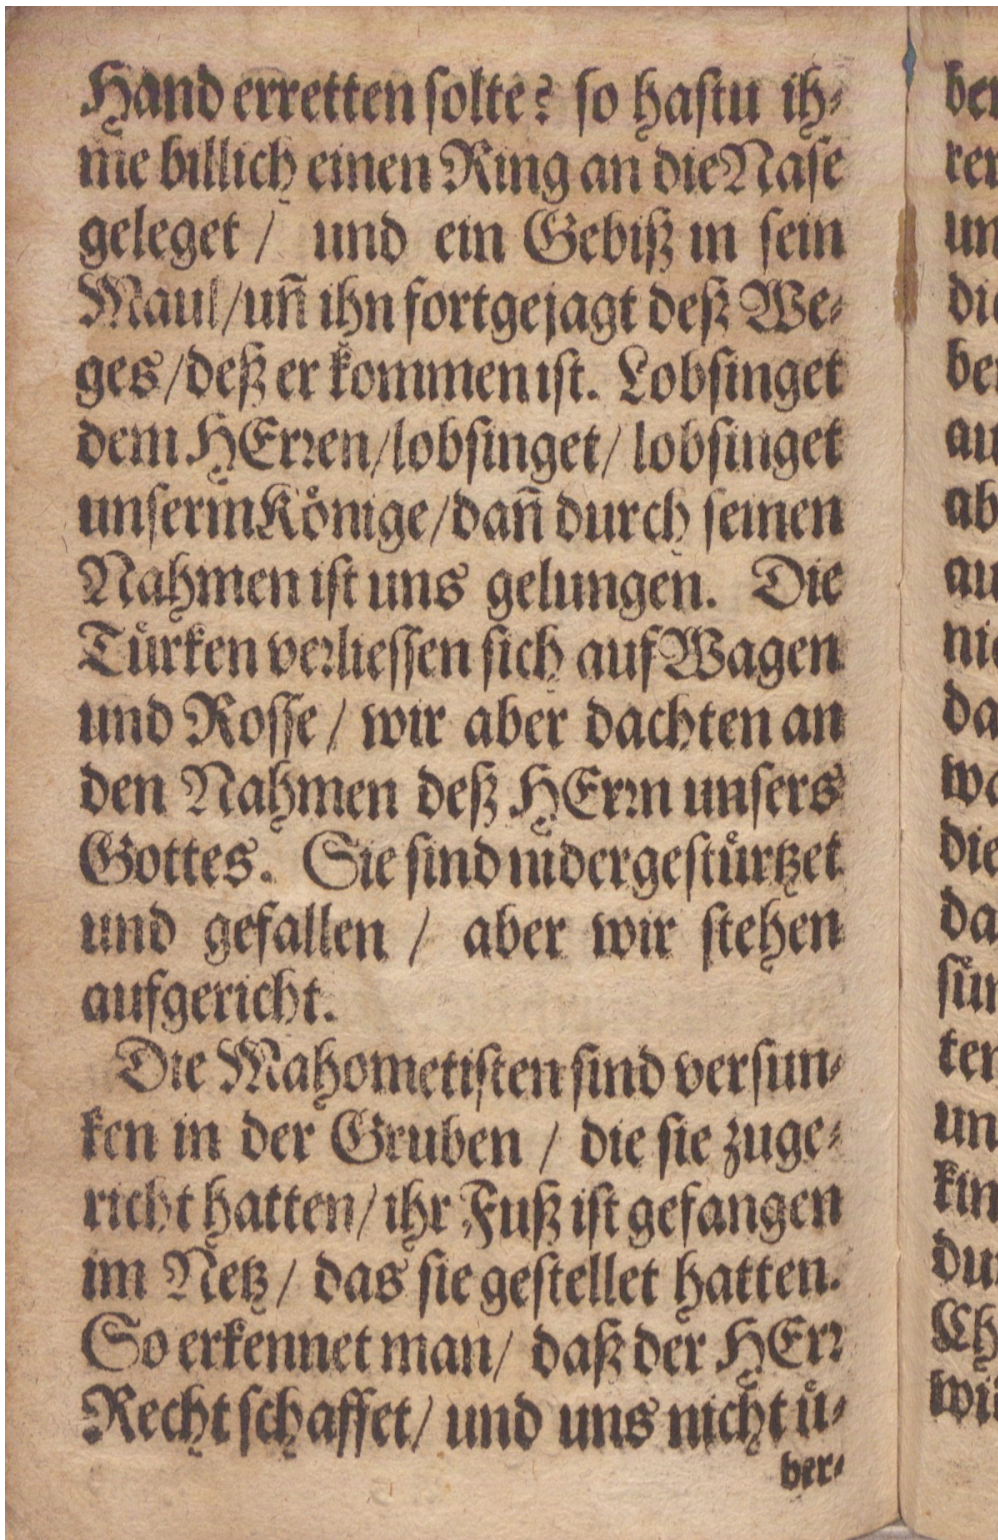 Hand erretten solte? so hastu ih⸗
me billich einen Ring an die Nase
geleget / und ein Gebiß in sein
Maul / uñ ihn fortgejagt deß We⸗
ges / deß er kommen ist. Lobsinget
dem HErren / lobsinget / lobsinget
unserm Könige / dañ durch seinen
Nahmen ist uns gelungen. Die
Türken verliessen sich auf Wagen
und Rosse / wir aber dachten an
den Nahmen deß HErrn unsers
Gottes. Sie sind nidergestürtzet
und gefallen / aber wir stehen
aufgericht.
Die Mahometisten sind versun⸗
ken in der Gruben / die sie zuge⸗
richt hatten / ihr Fuß ist gefangen
im Netz / das sie gestellet hatten.
So erkennet man / daß der HErr
Recht schaffet / und uns nicht ü⸗
ber⸗